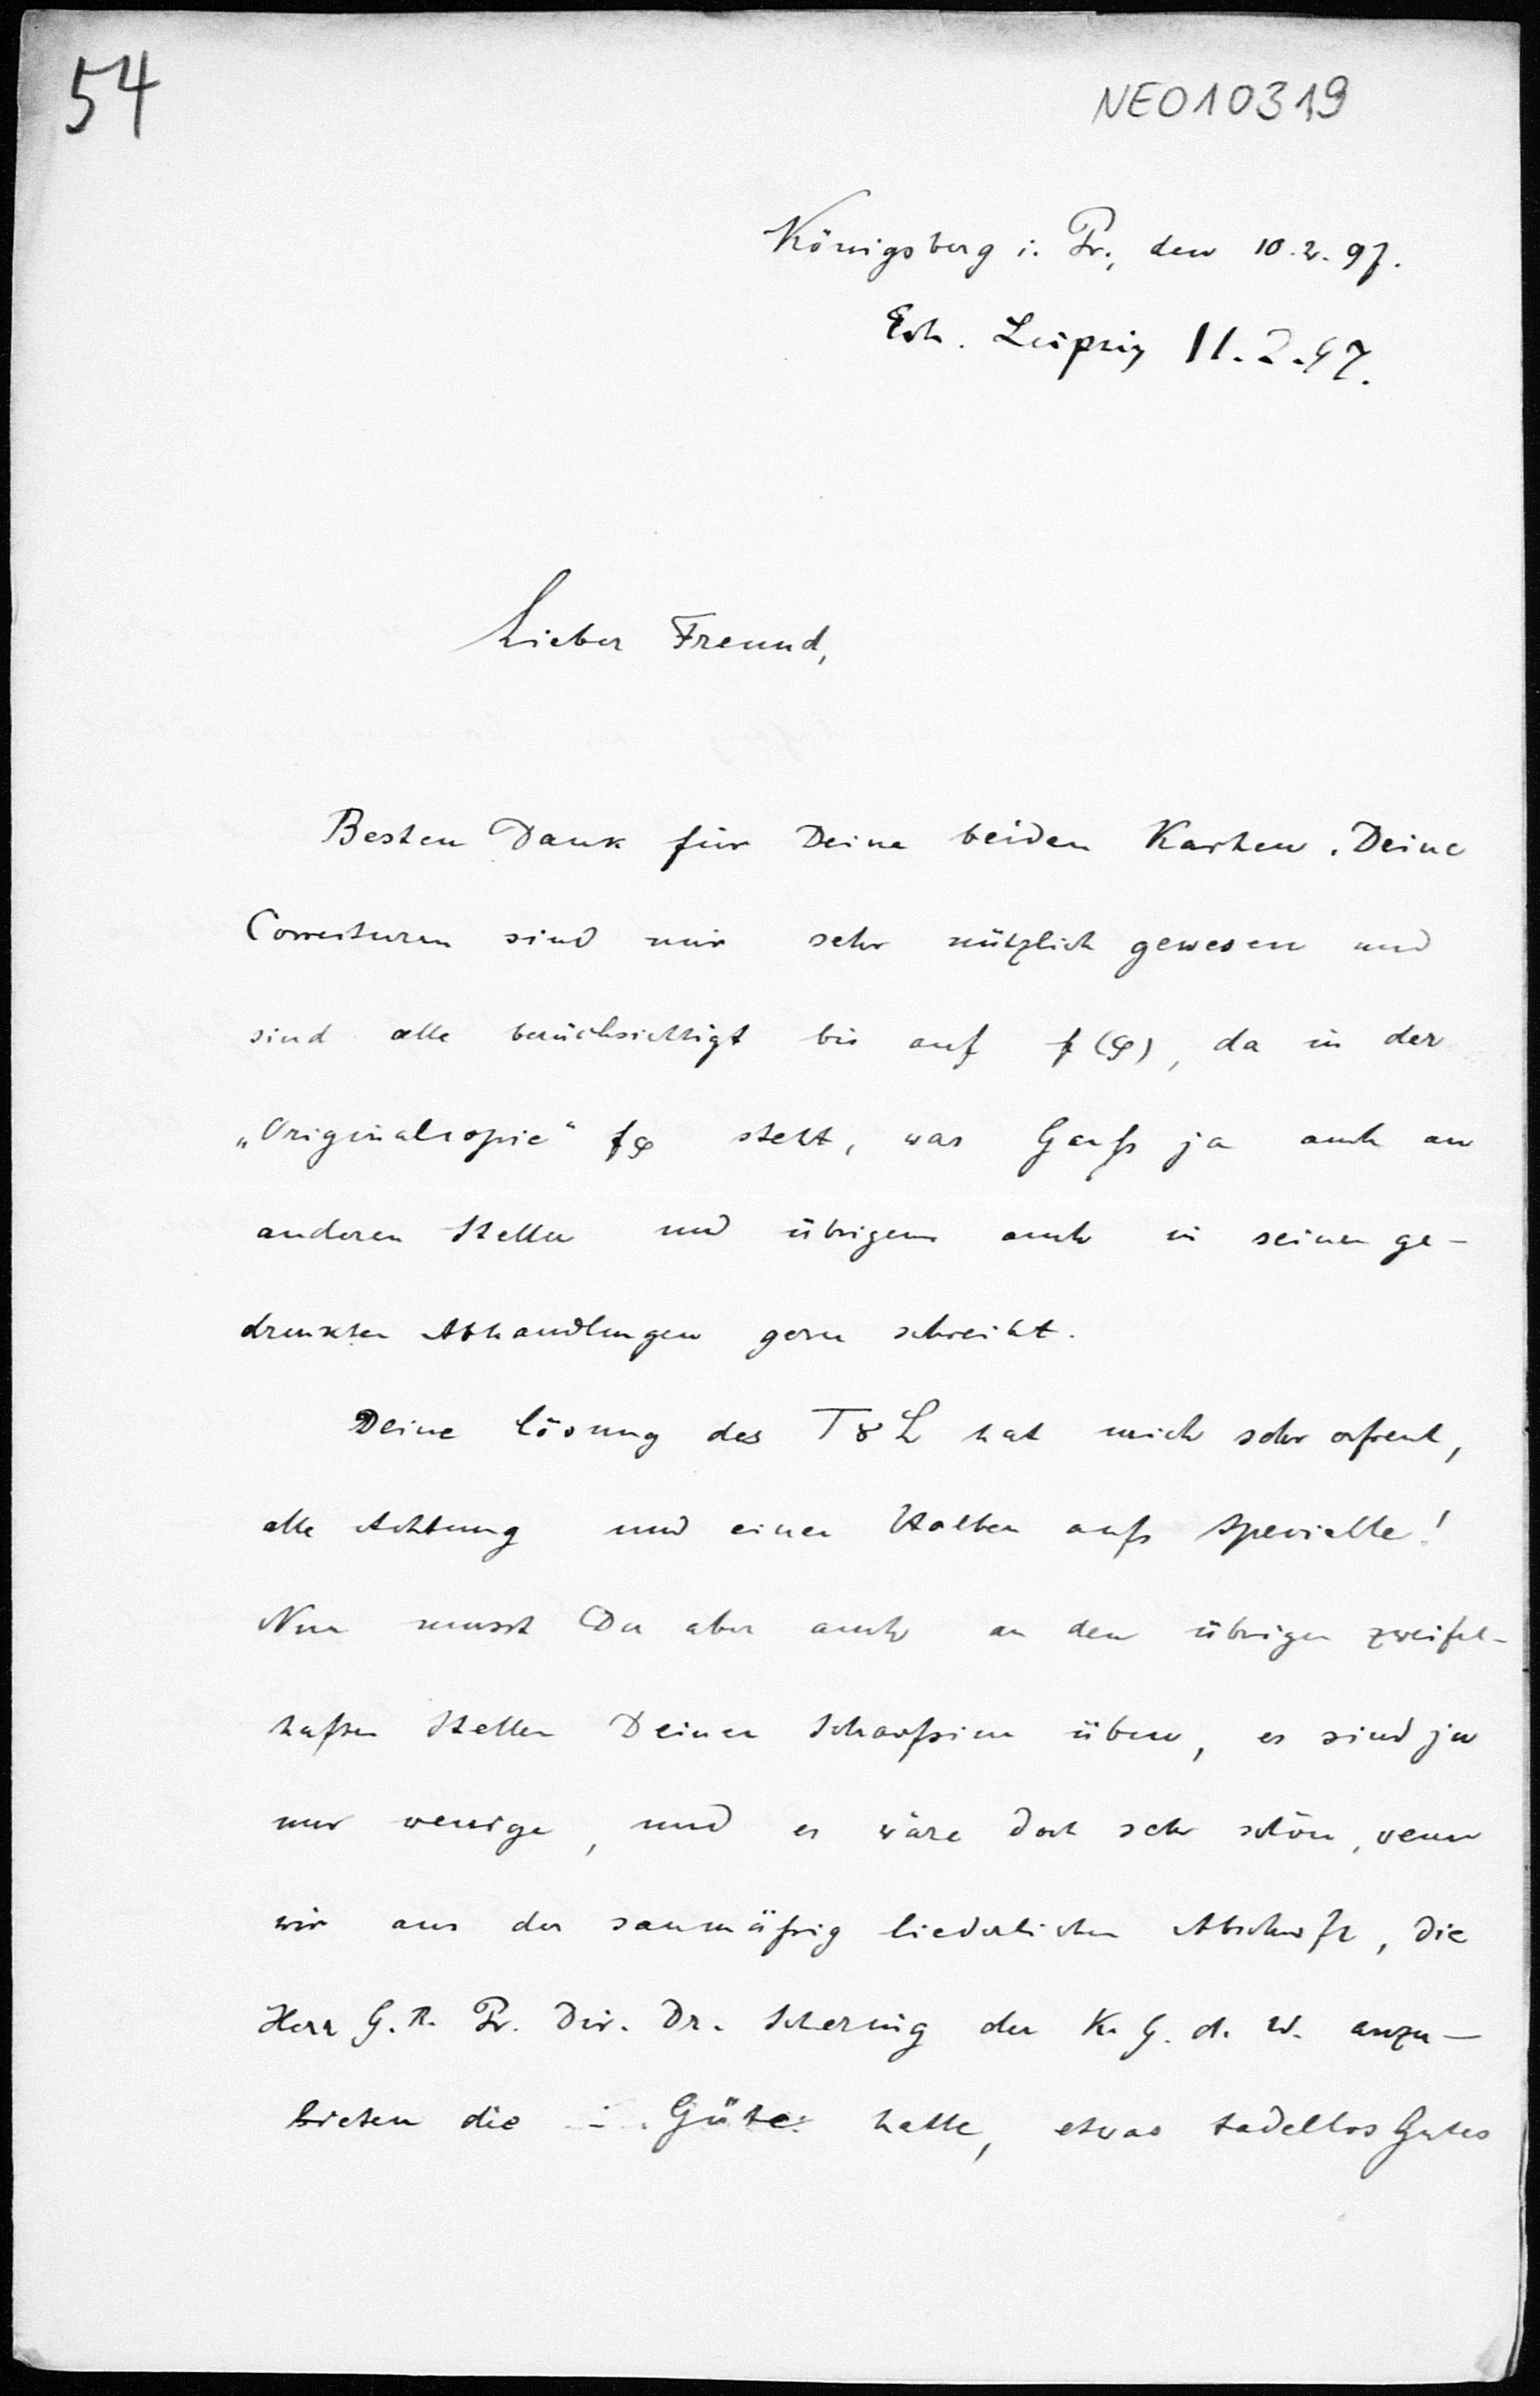 54
NEO10319
Königsberg i. Pr., den 10.2.97.
Erh. Leipzig 11.2.97.
Lieber Freund,
Besten Dank für Deine beiden Karten. Deine
Correcturen sind mir sehr nützlich gewesen und
sind alle berücksichtigt bis auf f(φ), da in der
„Originalcopie“ fφ steht, was Gauß ja auch an
anderen Stellen und übrigens auch in seinen ge-
druckten Abhandlungen gern schreibt.
Deine Lösung des T & L hat mich sehr erfreut,
alle Achtung und einen Halben aufs Specielle!
Nun musst Du aber auch an den übrigen zweifel-
haften Stellen Deinen Scharfsinn üben, es sind ja
nur wenige, und es wäre doch sehr schön, wenn
wir aus der saumäßig liederlichen Abschrift, die
Herr G. R. Pr. Dir. Dr. Schering der K. G. d. W. anzu-
bieten die Güte hatte, etwas tadellos Gutes